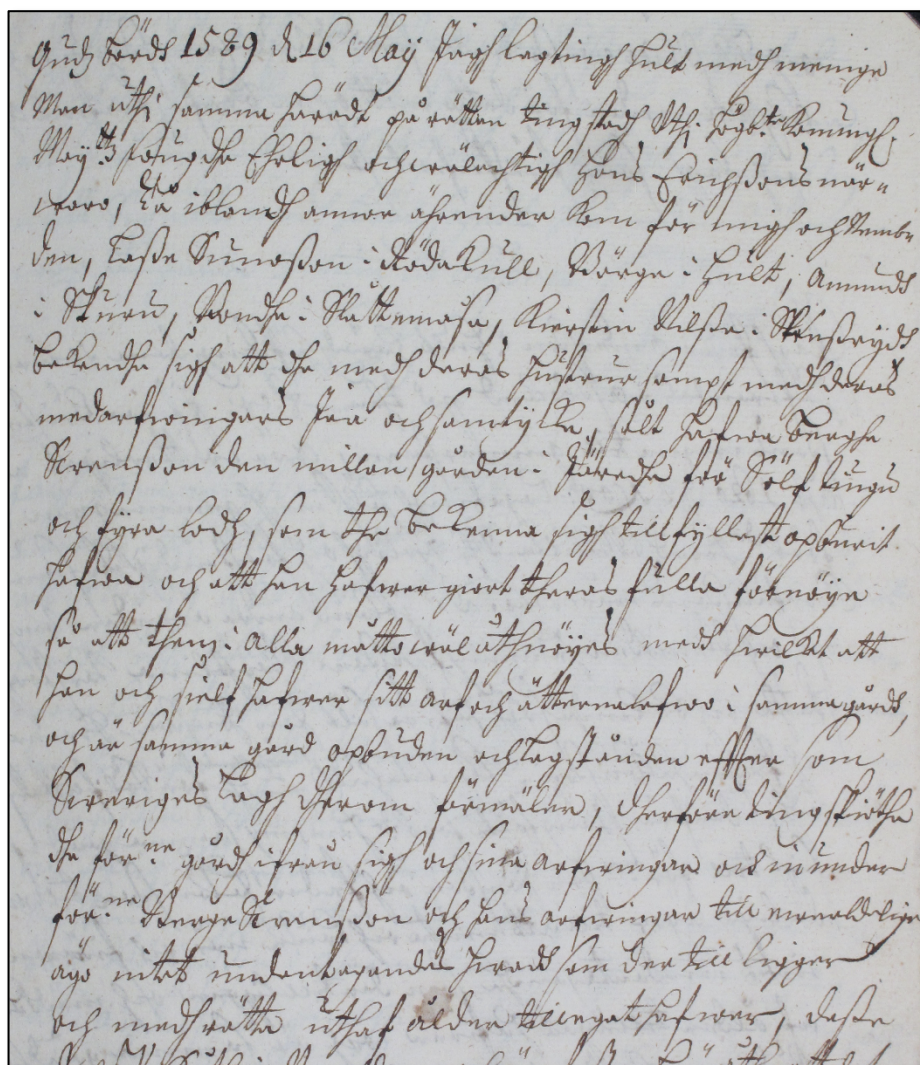 Gudz börds 1589 d 16 Maÿ Jagh lagtingh hult medh menige
Man uthi samma häradt på rätten tingstadh Uthi högbt. Konungh.
Maytz fougdhe Ehrligh och wälachtigh Hans Erichßons när-
waro, Då iblandh annor ährender kom för migh och Nemb-
den, Laße Sunoßon i Rödakull, Börge i Hult, Amundt
i Skuru, Bondhe i Slättemåsa, Kierstin Nilße i
bekendhe sigh att dhe medh deras hustrur sampt medh deras
medarfwingars Jaa och samtÿkke, sålt hafwa berghe
Swenßon den millan gården i för Sölf tingu
och fÿra lodh, som the bekenna sigh till fÿllest opburit
hafwa och att han hafwer giort theras fulla förnöye
så att them i alla måtto wäl åthnöyes medt hwilket att
han och sielf hafwer sitt arf och ätternalefwo i samma gårdt,
och är samma gård opbuden och lagstånden effter som
Sweriges Lagh dherom förmäler, dherföre tingskiöthe
dhe förne gårdh ifrån sigh och sina arfwingar och inunder
förne Berge Swenßon och hans arfwingar till ewerdelige
ägo intet undentagandes hwadt som der till ligger
och medh rätta uthaf ålder tillegat hafwer, deße